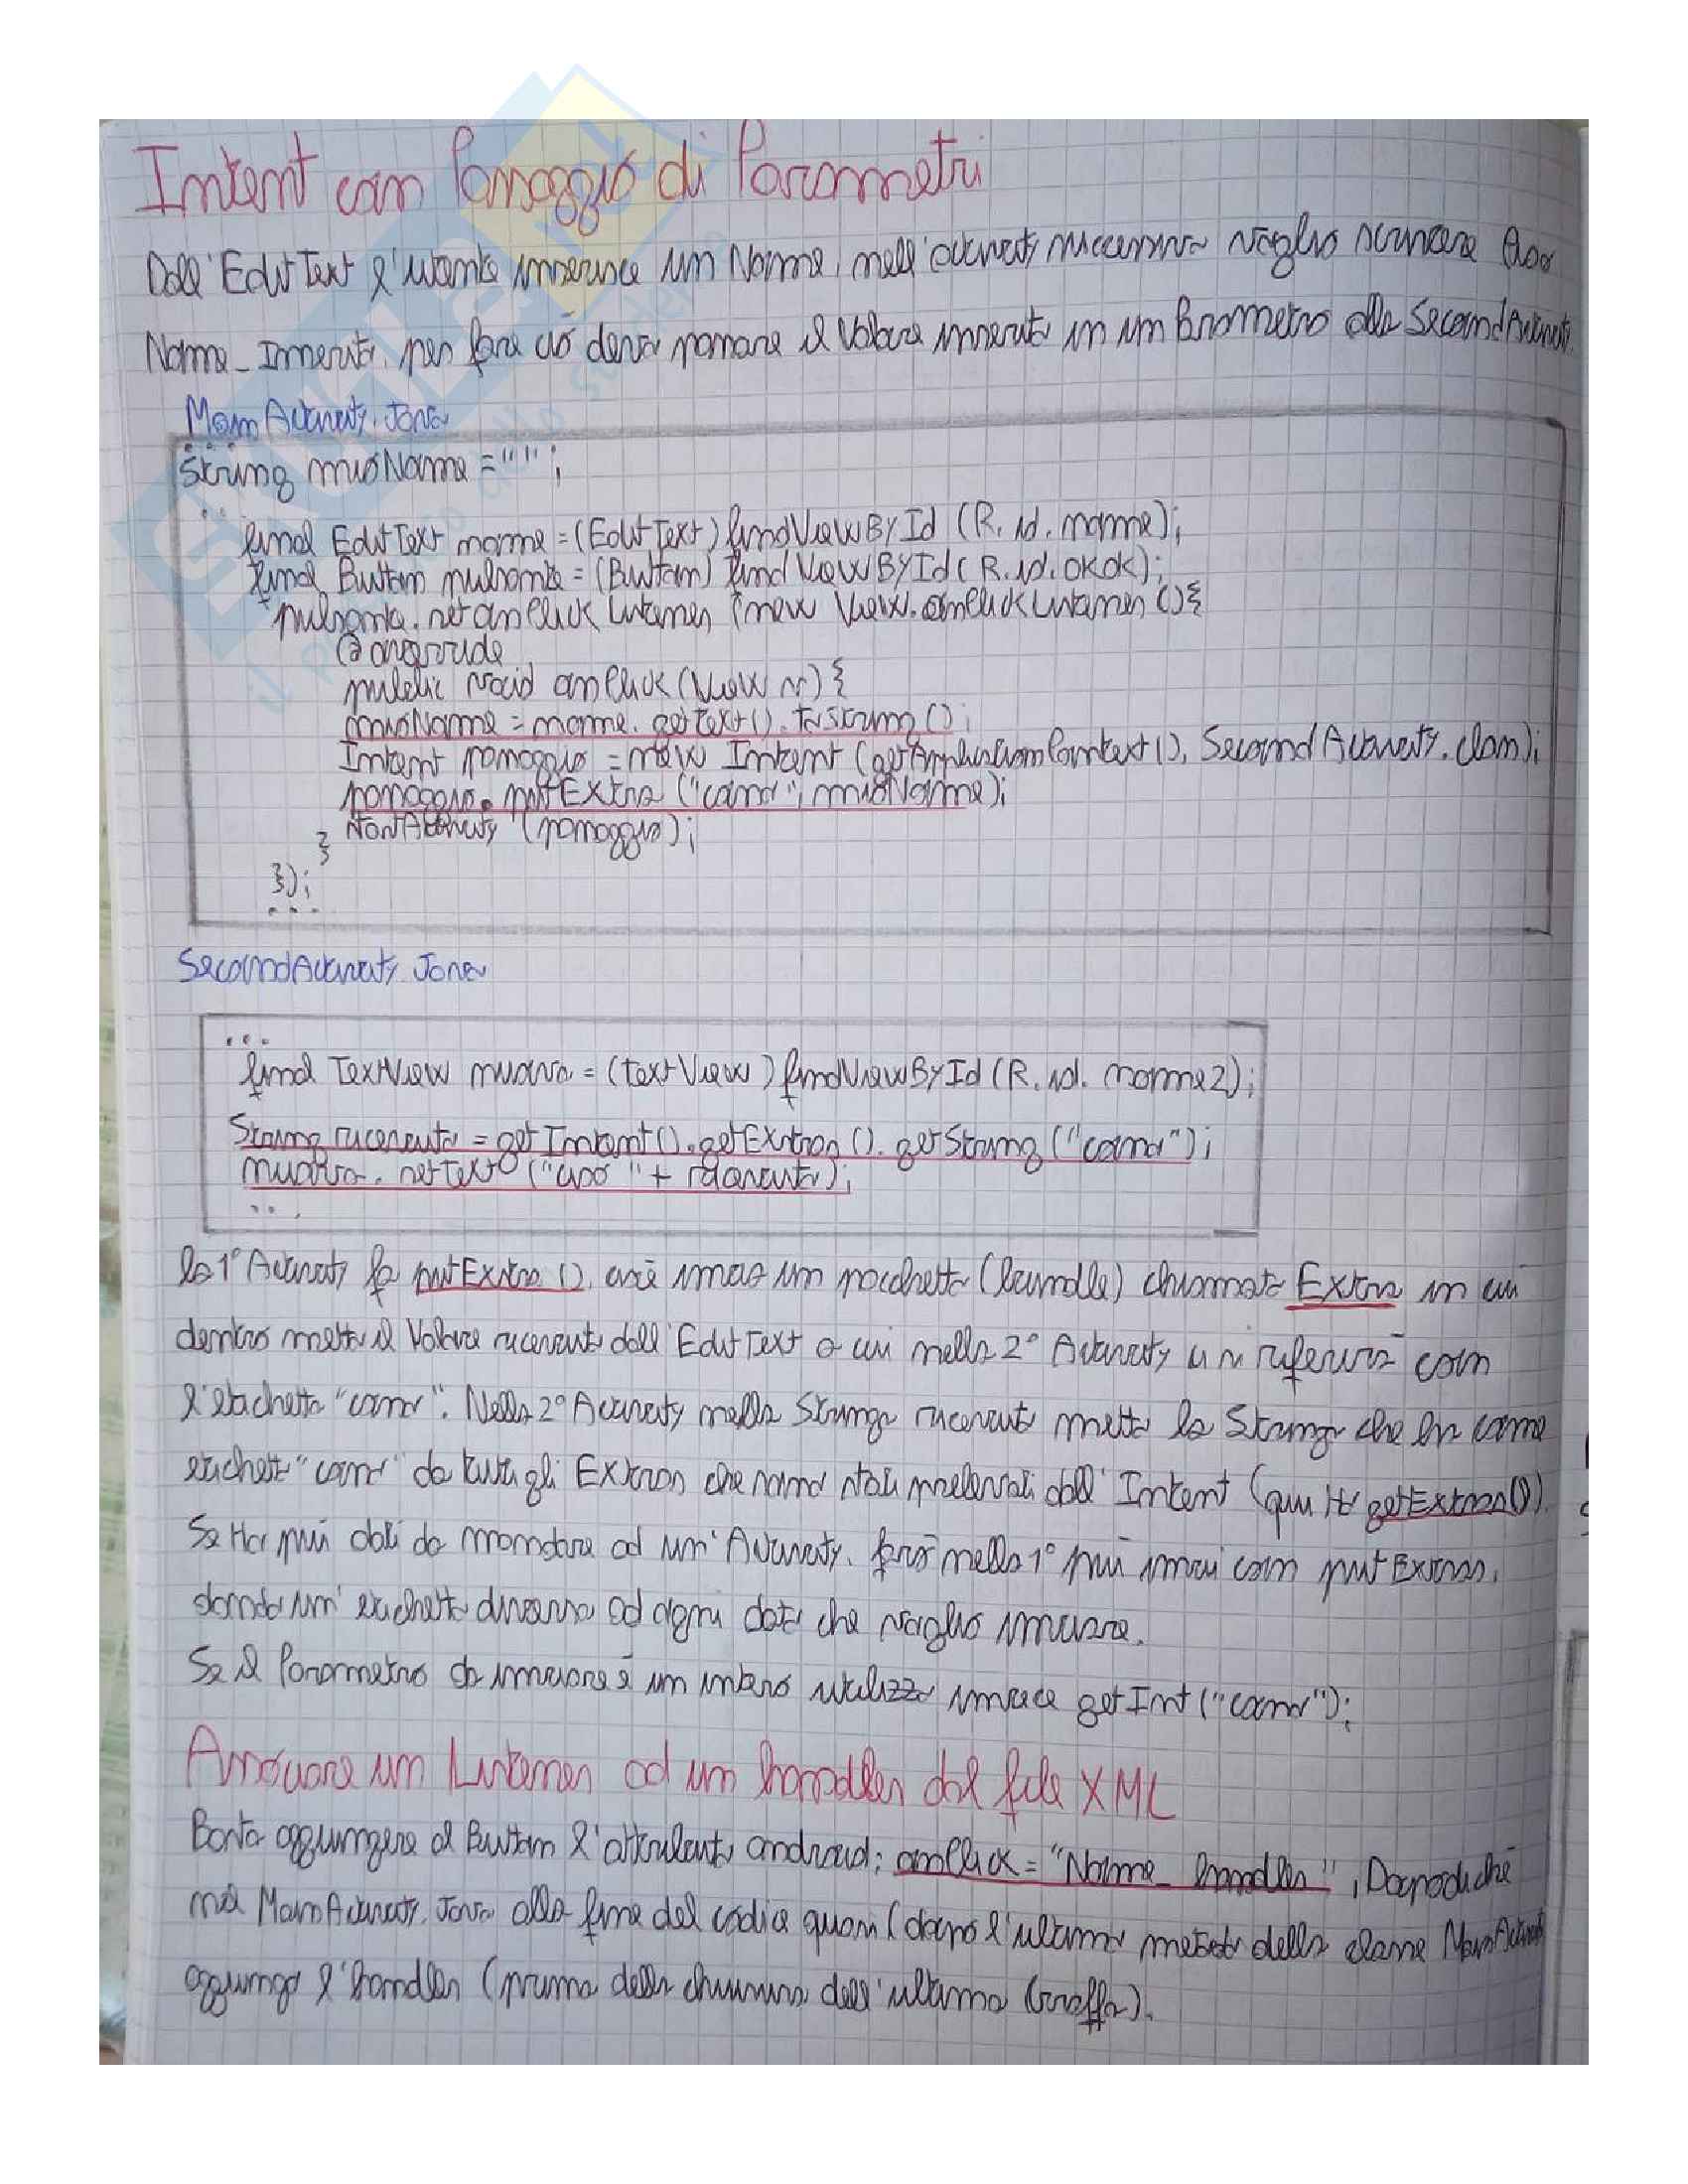 Intent con Passaggio di Parametri
Dall'EditText l'utente inserisce un Nome, nell'activity successiva voglio scrivere Ciao
Nome_Inserito, per fare ciò devo passare il Valore inserito in un Parametro alla SecondActivity.
MainActivity.Java
...
String mioNome = "";
...
final EditText nome = (EditText) findViewById (R.id.nome);
final Button pulsante = (Button) findViewById (R.id.okok);
pulsante.setonClickListener (new View.onClickListener () {
@override
public void onClick (View v) {
mioNome = nome.getText().toString();
Intent passaggio = new Intent (getApplicationContext(), SecondActivity.class);
passaggio.putExtra ("cand", mioNome);
startActivity (passaggio);
}
});
...
SecondActivity.Java
...
final TextView nuova = (textView) findViewById (R.id.nome2);
String ricevuto = getIntent().getExtras().getString ("cand");
nuova.setText ("ciao " + ricevuto);
...
la 1° Activity fa putExtra (), cioè invio un pacchetto (bundle) chiamato Extra in cui
dentro metto il Valore ricevuto dall'EditText a cui nella 2° Activity ci si riferirà con
l'etichetta "cand". Nella 2° Activity nella Stringa ricevuto metto la Stringa che ha come
etichetta "cand" da tutti gli Extras che sono stati prelevati dall'Intent (qui sta getExtras()).
Se Ho più dati da mandare ad un'Activity, farò nella 1° più invii con putExtras,
dando un'etichetta diversa ad ogni dato che voglio inviare.
Se il Parametro da inviare è un intero utilizzo invece getInt ("cand");
Associare un Listener ad un handler dal file XML
Basta aggiungere al Button l'attributo android: onClick = "Nome_handler", Dopodiché
nel MainActivity.Java alla fine del codice quasi (dopo l'ultimo metodo della classe MainActivity
aggiungo l'handler (prima della chiusura dell'ultima Graffa).